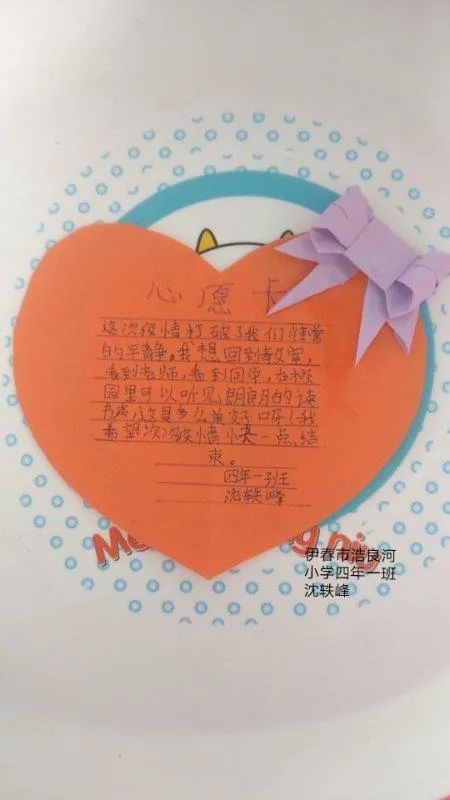 心愿卡
这次疫情打破了我们往常
的平静。我想回到教室,
看到老师,看到同学,在校
园里可以听见朗朗的读
书声,这是多么美好呀!我
希望次次疫情快一点结
束。
四年一班
沈轶峰
Me
ng niu
伊春市浩良河
小学四年一班
沈轶峰